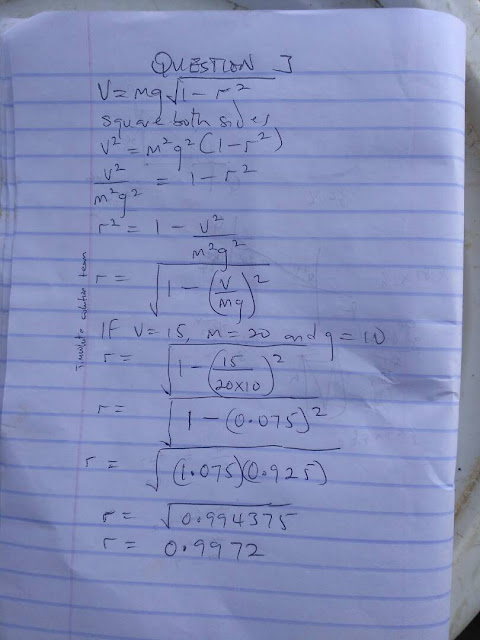 QUESTION 3
V = mg√1 - r²
square both sides
V² = m²g² (1 - r²)
V²/m²g² = 1 - r²
r² = 1 - V²/m²g²
r = √1 - (V/mg)²
IF V = 15, m = 20 and g = 10
r = √1 - (15/20×10)²
r = √1 - (0.075)²
r = √(1.075)(0.925)
r = √0.994375
r = 0.9972
team